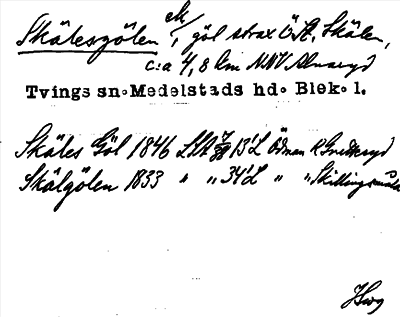 Skälesgölen ek/, göl strax Ö, Skälen,
c:a 4,8 km NNV Alnaryd
Tvings sn. Medelstads hd. Blek. l.
Skäles Göl 1846 LSA 13'L Ödman
Skälgölen 1833 " " 34'L " " Skillingsmåla